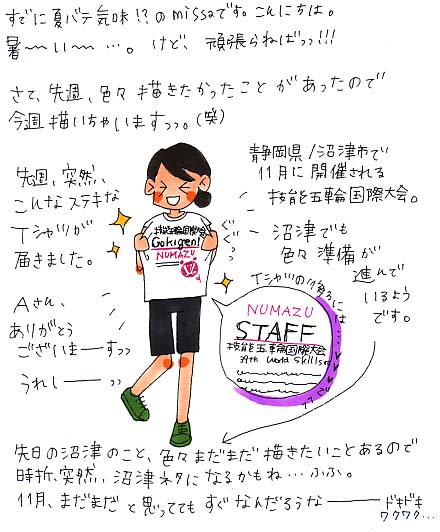 すでに夏バテ気味!?のmissaです。こんにちは。
暑〜〜い〜〜…。けど、頑張らねばっっ!!!
さて、先週、色々描きたかったことがあったので
今週描いちゃいますっっ。(笑)
先週、突然、
こんなステキな
Tシャツが
届きました。
Aさん、
ありがとう
ございまーすっっ
うれしーーっっ
技能五輪国際大会
Gokigen!
NUMAZU
ぐぐっっ
静岡県/沼津市で
11月に開催される
技能五輪国際大会。
沼津でも
色々準備が
進んで
いるよう
です。
Tシャツの後ろには…
NUMAZU
STAFF
技能五輪国際大会
39th World Skills
先日の沼津のこと、色々まだまだ描きたいことあるので
時折、突然、沼津ネタになるかもね…ふふ。
11月、まだまだと思っててもすぐなんだろうなーーー
ドキドキ
ワクワク…